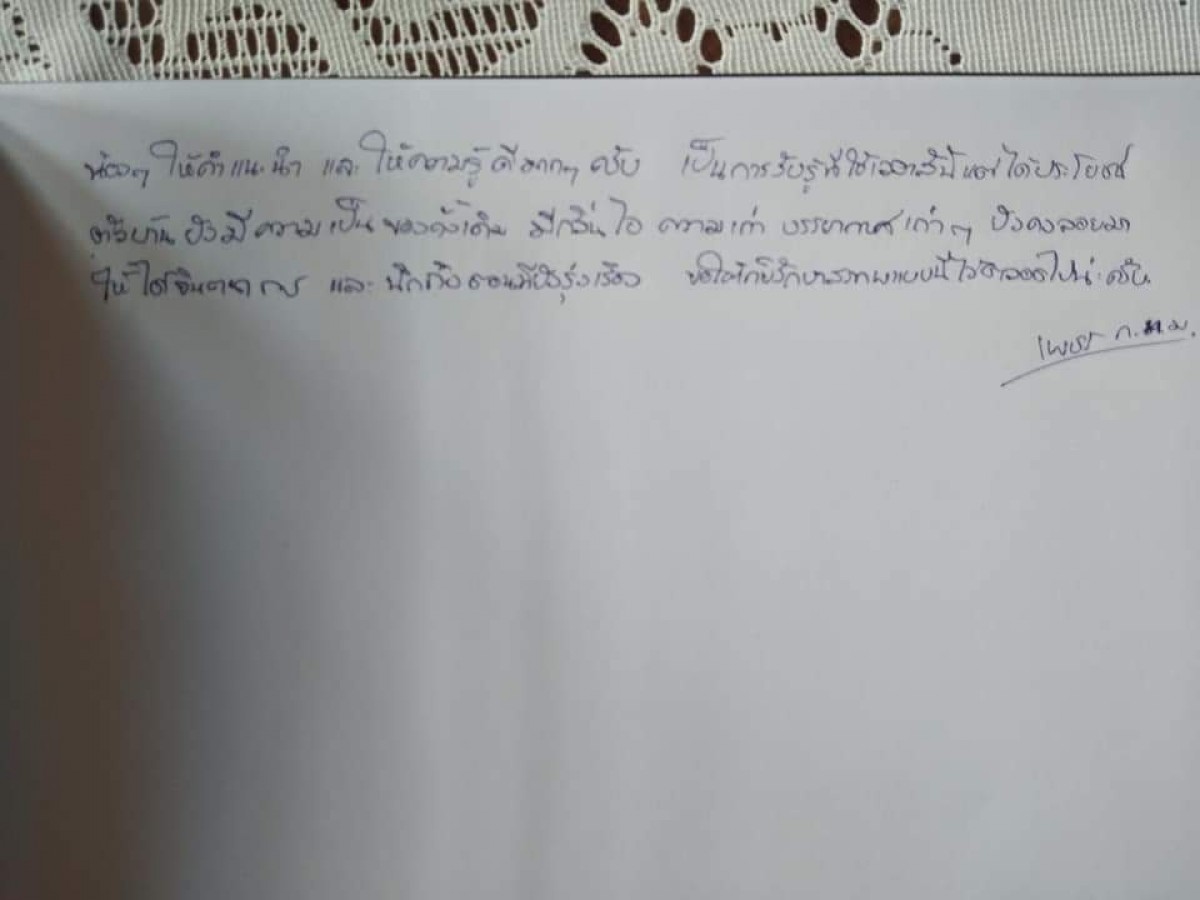 น้องๆ ให้คำแนะนำ และ ให้ความรู้ ดีมากๆ ครับ เป็นการรับรู้ที่ใช้เวลาสั้น แต่ได้ประโยชน์
ตัวบ้าน ยังมีความเป็นของดั้งเดิม มีกลิ่นไอ ความเก่า บรรยากาศเก่าๆ ยังคงลอยมา
ให้ได้จินตนาการ และ นึกถึงตอนที่ยังรุ่งเรือง ขอให้เก็บรักษาสภาพแบบนี้ไว้ตลอดไปน่ะครับ
เพชร ก.ท.ม.